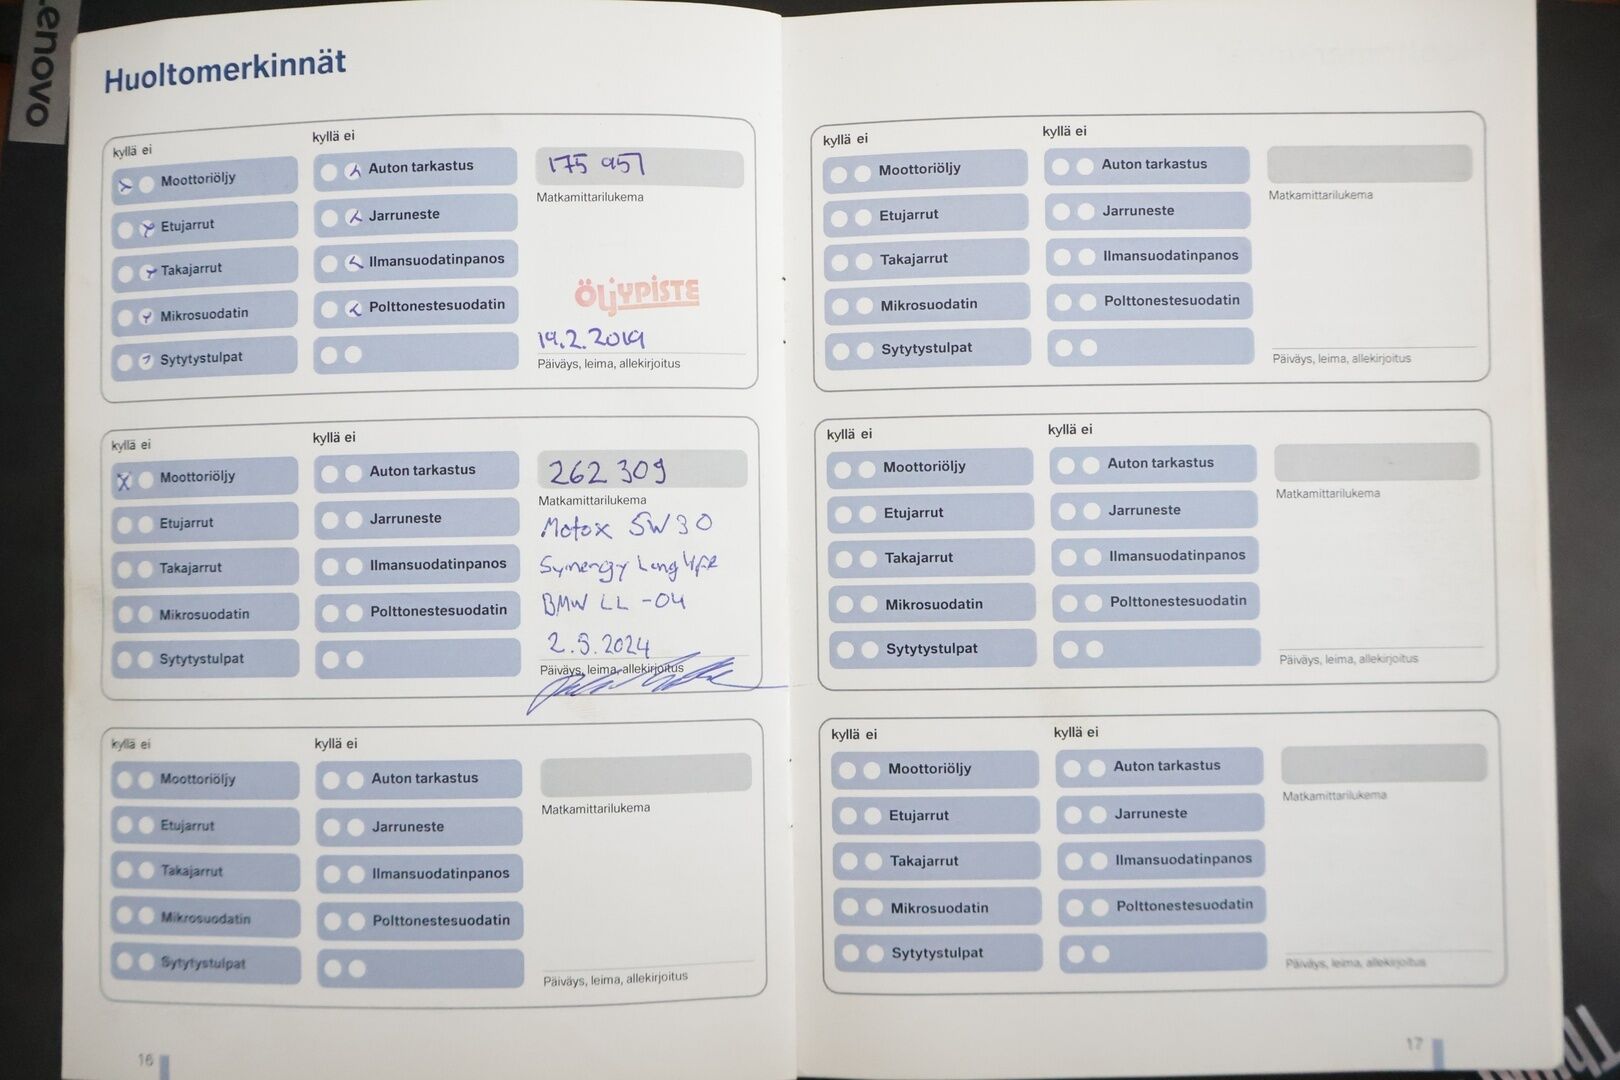 Lenovo
Huoltomerkinnät
kyllä ei
kyllä ei
Moottoriöljy
Auton tarkastus
175 957
Matkamittarilukema
Etujarrut
Jarruneste
Takajarrut
Ilmansuodatinpanos
Mikrosuodatin
Polttonestesuodatin
ÖLJYPISTE
Sytytystulpat
19.2.2019
Päiväys, leima, allekirjoitus
kyllä ei
kyllä ei
Moottoriöljy
Auton tarkastus
262 309
Matkamittarilukema
Etujarrut
Jarruneste
Motox 5W30
Takajarrut
Ilmansuodatinpanos
Synergy Longlife
Mikrosuodatin
Polttonestesuodatin
BMW LL-04
Sytytystulpat
2.5.2024
Päiväys, leima, allekirjoitus
kyllä ei
kyllä ei
Moottoriöljy
Auton tarkastus
Matkamittarilukema
Etujarrut
Jarruneste
Takajarrut
Ilmansuodatinpanos
Mikrosuodatin
Polttonestesuodatin
Sytytystulpat
Päiväys, leima, allekirjoitus
16
kyllä ei
kyllä ei
Moottoriöljy
Auton tarkastus
Matkamittarilukema
Etujarrut
Jarruneste
Takajarrut
Ilmansuodatinpanos
Mikrosuodatin
Polttonestesuodatin
Sytytystulpat
Päiväys, leima, allekirjoitus
kyllä ei
kyllä ei
Moottoriöljy
Auton tarkastus
Matkamittarilukema
Etujarrut
Jarruneste
Takajarrut
Ilmansuodatinpanos
Mikrosuodatin
Polttonestesuodatin
Sytytystulpat
Päiväys, leima, allekirjoitus
kyllä ei
kyllä ei
Moottoriöljy
Auton tarkastus
Matkamittarilukema
Etujarrut
Jarruneste
Takajarrut
Ilmansuodatinpanos
Mikrosuodatin
Polttonestesuodatin
Sytytystulpat
Päiväys, leima, allekirjoitus
17